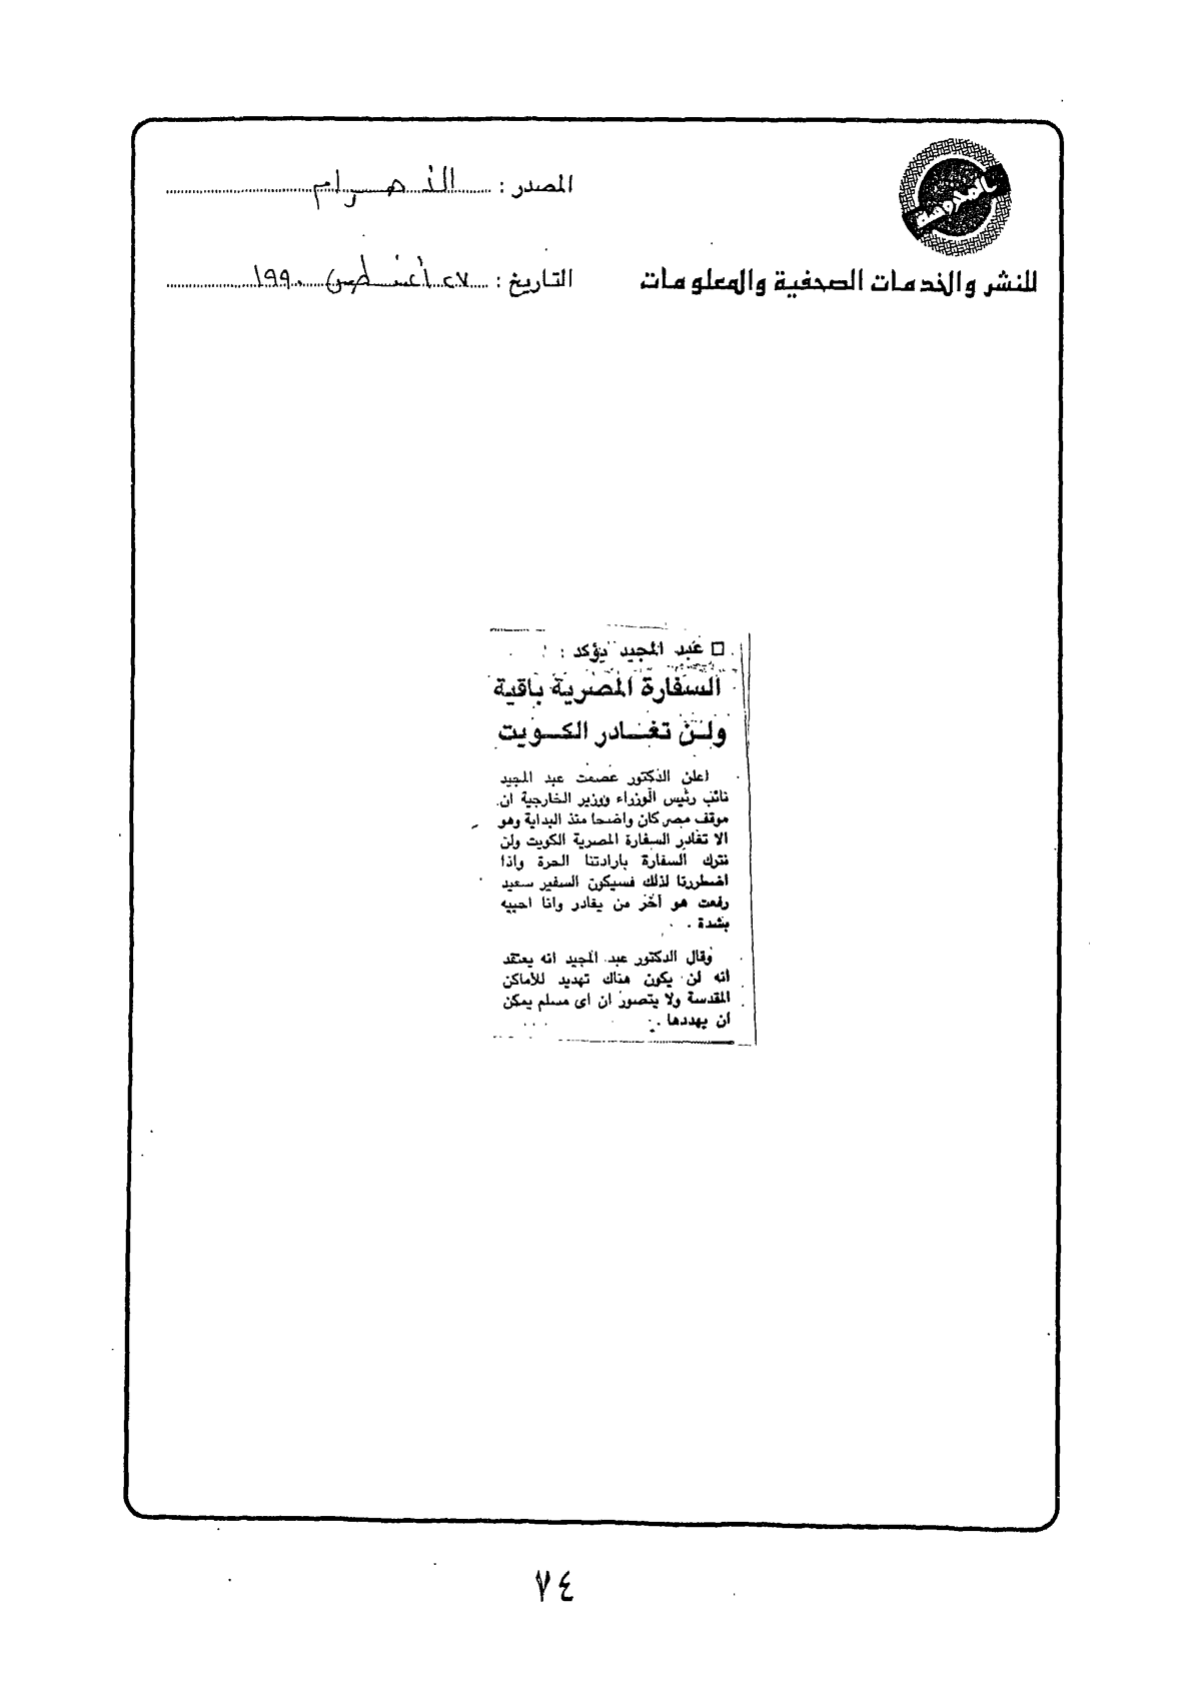 المحروسة
للنشر والخدمات الصحفية والمعلومات
المصدر : الأهرام
التاريخ : ٢٧ أغسطس ١٩٩٠
عبد المجيد يؤكد :
السفارة المصرية باقية
ولن تغادر الكويت
اعلن الدكتور عصمت عبد المجيد
نائب رئيس الوزراء ووزير الخارجية ان
موقف مصر كان واضحا منذ البداية وهو
الا تغادر السفارة المصرية الكويت ولن
نترك السفارة بارادتنا الحرة واذا
اضطررنا لذلك فسيكون السفير سعيد
رفعت هو آخر من يغادر وانا احييه
بشدة .
وقال الدكتور عبد المجيد انه يعتقد
انه لن يكون هناك تهديد للأماكن
المقدسة ولا يتصور ان اى مسلم يمكن
ان يهددها .
٧٤